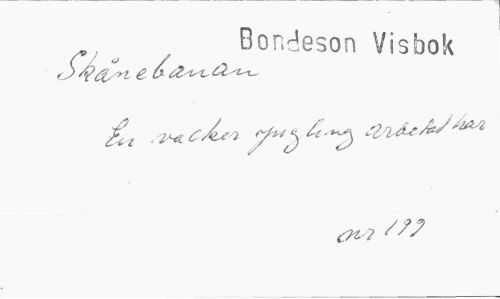 Bondeson Visbok
Skånebanan
En vacker yngling arbetat har
nr 199